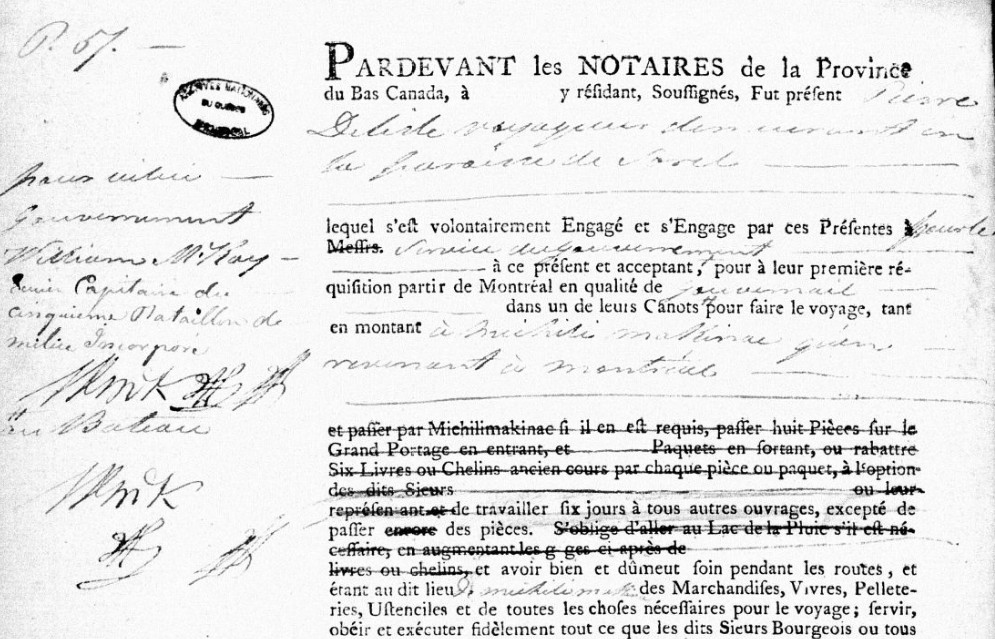 P. 57. —
ARCHIVES NATIONALES
DU QUÉBEC
MONTRÉAL
PARDEVANT les NOTAIRES de la Province
du Bas Canada, à y résidant, Soussignés, Fut présent Pierre
Delisle voyageur demeurant en
la paroisse de Sorel
lequel s'est volontairement Engagé et s'Engage par ces Présentes pour le
Messrs. Service du gouvernement
à ce présent et acceptant, pour à leur première ré-
quisition partir de Montréal en qualité de gouvernail
dans un de leurs Canots pour faire le voyage, tant
en montant à Michili makinac qu'en
revenant à montréal
et passer par Michilimakinac si il en est requis, passer huit Pièces sur le
Grand Portage en entrant, et Paquets en sortant, ou rabattre
Six Livres ou Chelins ancien cours par chaque pièce ou paquet, à l'option
des dits Sieurs ou leur
représen ant et de travailler six jours à tous autres ouvrages, excepté de
passer encore des pièces. S'oblige d'aller au Lac de la Pluie s'il est né-
cessaire, en augmentant les g ges ci-après de
livres ou chelins, et avoir bien et dûment soin pendant les routes, et
étant au dit lieu de michili mak des Marchandises, Vivres, Pellete-
ries, Ustenciles et de toutes les choses nécessaires pour le voyage; servir,
obéir et exécuter fidèlement tout ce que les dits Sieurs Bourgeois ou tous
pour
Gouvernement
William McKay
Capitaine du
cinquieme Bataillon de
milice Incorporé
au Bateau